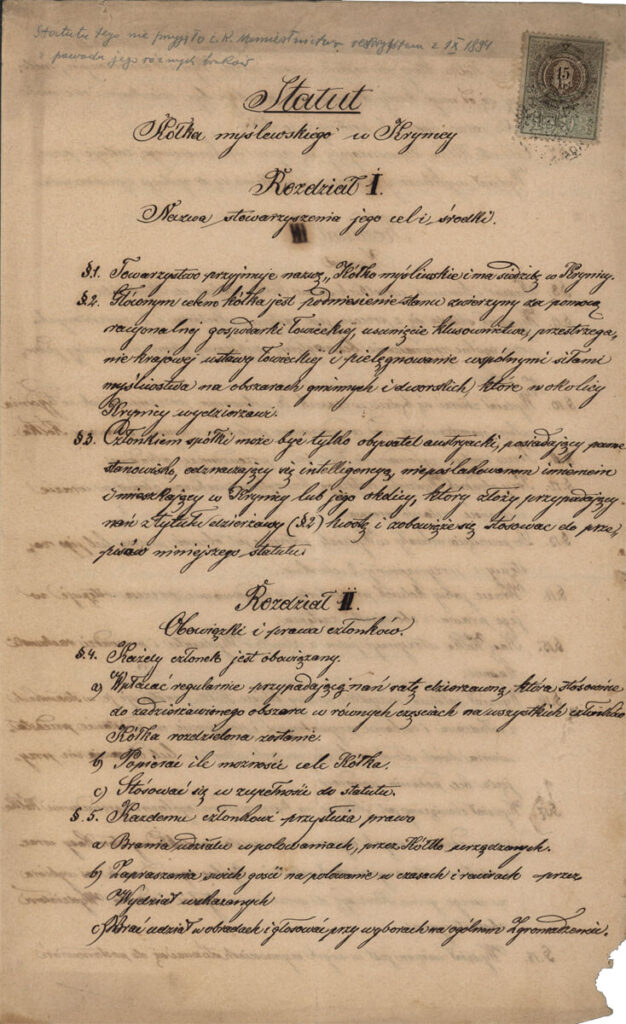 Statutu tego nie przyjęło c.k. Namiestnictwo reskryptem z 1 IX 1894
powodu jego różnych braków
15
Statut
Kółka myślewskiego w Krynicy
Rozdział I.
Nazwa stowarzyszenia jego cel i środki.
§1. Towarzystwo przyjmuje nazwę „Kółko myśliwskie i ma siedzibę w Krynicy.
§2. Głównym celem kółka jest podniesienie stanu zwierzyny za pomocą
racyonalnej gospodarki łowieckiej, usunięcie kłusownictwa, przestrzega-
nie krajowej ustawy łowieckiej i pielęgnowanie wspólnymi siłami
myśliwstwa na obszarach gminnych i dworskich, które w okolicy
Krynicy wydzierżawi.
§3. Członkiem spółki może być tylko obywatel austryacki, posiadający pewne
stanowisko, odznaczający się inteligencyą, nieposzlakowanem imieniem
i mieszkający w Krynicy lub jego okolicy, który złoży przypadającą
nań z tytułu dzierżawy (§2) kwotę i zobowiąże się stosować do prze-
pisów niniejszego statutu.
Rozdział II.
Obowiązki i prawa członków.
§4. Każdy członek jest obowiązany.
a) Wpłacać regularnie przypadającą nań ratę dzierżawną, która stósownie
do zadzierżawionego obszaru w równych częściach na wszystkich członków
Kółka rozdzieloną zostanie.
b) Popierać ile możności cele Kółka.
c) Stósować się w zupełności do statutu.
§5. Każdemu członkowi przysłuża prawo
a Brania udziału w polowaniach, przez Kółko urządzanych.
b) Zapraszania swoich gości na polowanie w czasach i rewirach przez
Wydział wskazanych
c) Brać udział w obradach i głosować przy wyborach na ogólnym Zgromadzeniu.